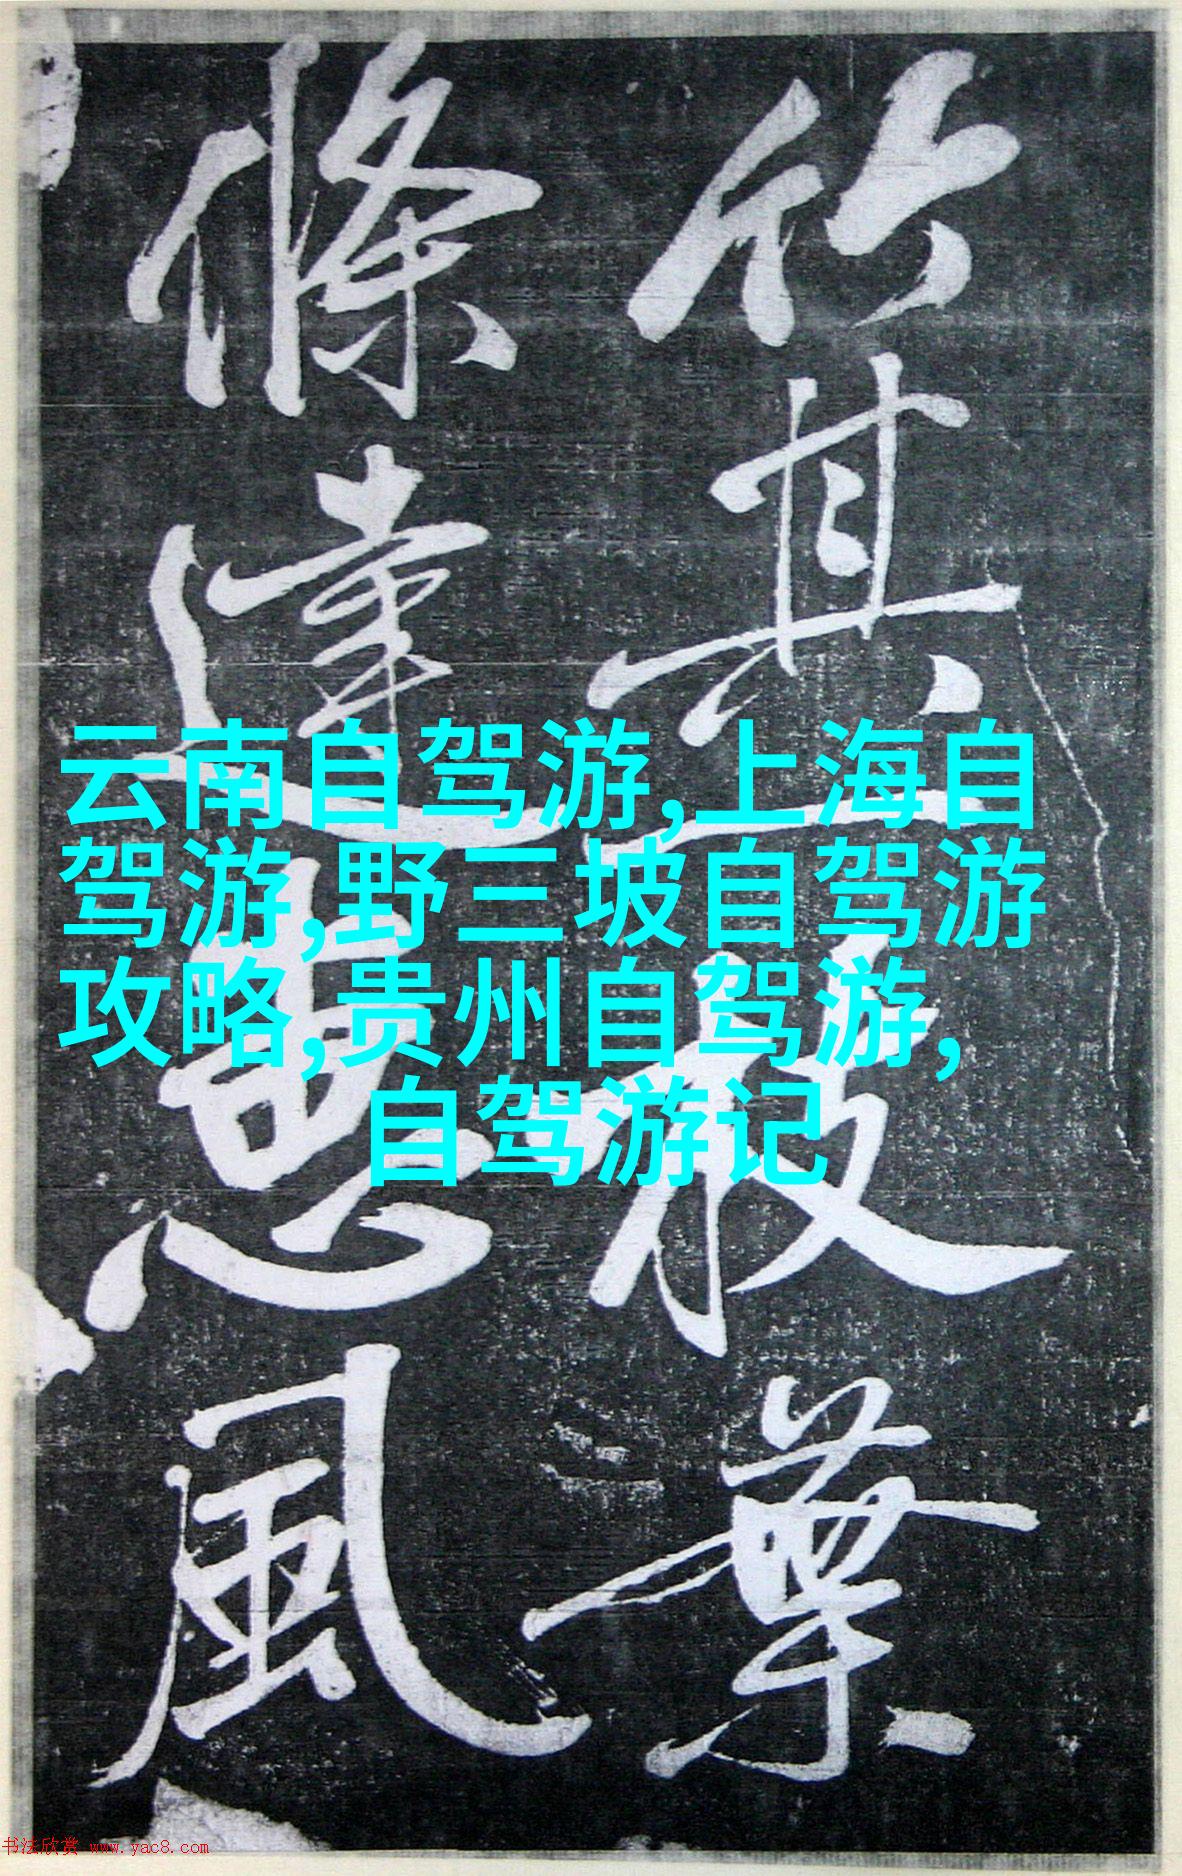 竹其一枝葉
條達惠風
云南自驾游,上海自
驾游,野三坡自驾游
攻略,贵州自驾游,
自驾游记
书法欣赏 www.yac8.com